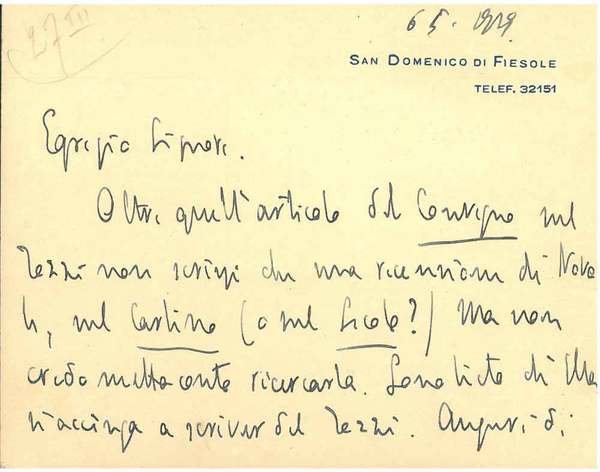 27 III
6 5. 1929.
SAN DOMENICO DI FIESOLE
TELEF. 32151
Egregio Signore.
Oltre quell'articolo del Convegno sul
Tozzi non scrissi che una recensione di Nove
le, nel Carlino (o nel Secolo?) Ma non
credo metta conto ricercarla. Sono lieto di Ella
s'accinga a scrivere del Tozzi. Auguri di